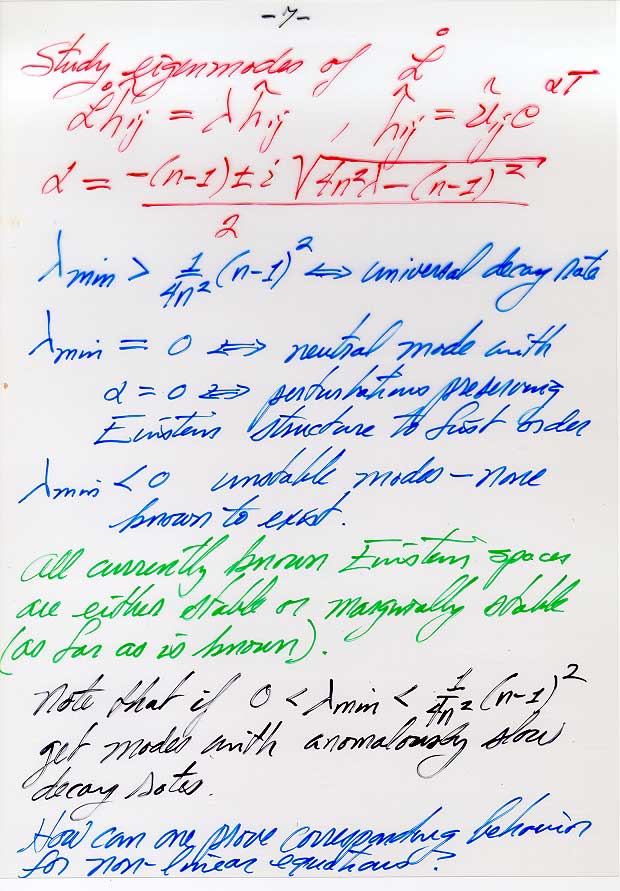 -7-
Study eigenmodes of L̊
L̊ĥij = λĥij , ĥij = ũij e^αT
α = -(n-1) ± i √4n²λ-(n-1)²
2
λmin > 1/4n² (n-1)² ⇔ universal decay rate
λmin = 0 ⇔ neutral mode with
α = 0 ⇔ perturbations preserving
Einstein structure to first order
λmin < 0 unstable modes - none
known to exist.
All currently known Einstein spaces
are either stable or marginally stable
(as far as is known).
Note that if 0 < λmin < 1/4n² (n-1)²
get modes with anomalously slow
decay rates.
How can one prove corresponding behavior
for non-linear equations?